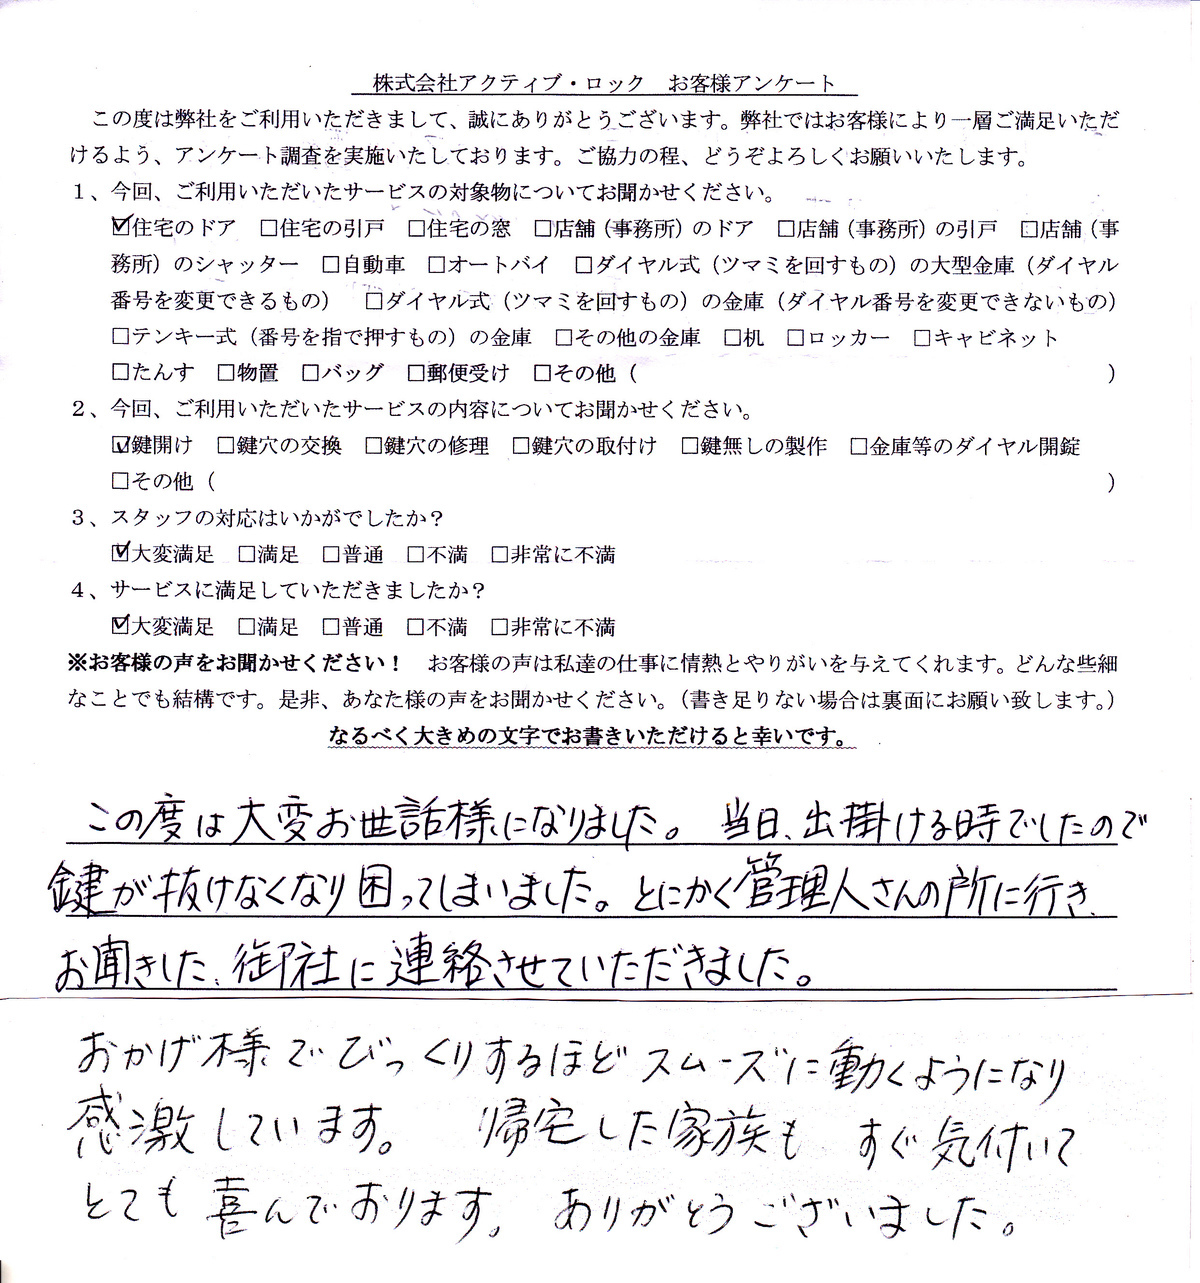 株式会社アクティブ・ロック　お客様アンケート
この度は弊社をご利用いただきまして、誠にありがとうございます。弊社ではお客様により一層ご満足いただ
けるよう、アンケート調査を実施いたしております。ご協力の程、どうぞよろしくお願いいたします。
１、今回、ご利用いただいたサービスの対象物についてお聞かせください。
☑住宅のドア　□住宅の引戸　□住宅の窓　□店舗（事務所）のドア　□店舗（事務所）の引戸　□店舗（事
務所）のシャッター　□自動車　□オートバイ　□ダイヤル式（ツマミを回すもの）の大型金庫（ダイヤル
番号を変更できるもの）　□ダイヤル式（ツマミを回すもの）の金庫（ダイヤル番号を変更できないもの）
□テンキー式（番号を指で押すもの）の金庫　□その他の金庫　□机　□ロッカー　□キャビネット
□たんす　□物置　□バッグ　□郵便受け　□その他（　　　　　　　　　　　　　　　　　　　　　　）
２、今回、ご利用いただいたサービスの内容についてお聞かせください。
☑鍵開け　□鍵穴の交換　□鍵穴の修理　□鍵穴の取付け　□鍵無しの製作　□金庫等のダイヤル開錠
□その他（　　　　　　　　　　　　　　　　　　　　　　　　　　　　　　　　　　　　　　　　　　）
３、スタッフの対応はいかがでしたか？
☑大変満足　□満足　□普通　□不満　□非常に不満
４、サービスに満足していただきましたか？
☑大変満足　□満足　□普通　□不満　□非常に不満
※お客様の声をお聞かせください！　お客様の声は私達の仕事に情熱とやりがいを与えてくれます。どんな些細
なことでも結構です。是非、あなた様の声をお聞かせください。（書き足りない場合は裏面にお願い致します。）
なるべく大きめの文字でお書きいただけると幸いです。
この度は大変お世話様になりました。当日、出掛ける時でしたので
鍵が抜けなくなり困ってしまいました。とにかく管理人さんの所に行き、
お聞きした、御社に連絡させていただきました。
おかげ様でびっくりするほどスムーズに動くようになり
感激しています。　帰宅した家族も　すぐ気付いて
とても喜んでおります。　ありがとうございました。